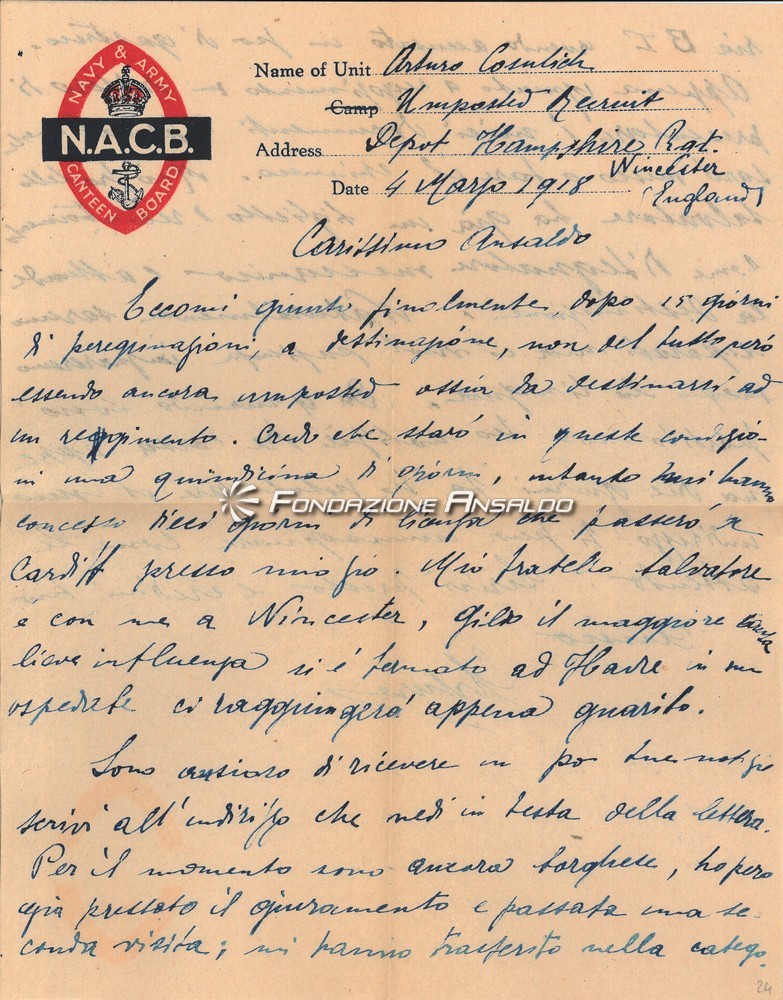 NAVY & ARMY
N.A.C.B.
CANTEEN BOARD
Name of Unit Arturo Cosulich
Camp Unposted Recruit
Address Depot Hampshire Rgt.
Wincester
Date 4 Marzo 1918 (England)
Carissimo Ansaldo
Eccomi giunto finalmente, dopo 15 giorni
di peregrinazioni, a destinazione, non del tutto però
essendo ancora unposted ossia da destinarsi ad
un reggimento. Credo che starò in queste condizio-
ni una quindicina di giorni, intanto mi hanno
FONDAZIONE ANSALDO
concesso dieci giorni di licenza che passerò a
Cardiff presso mio zio. Mio fratello Salvatore
è con me a Wincester, Gildo il maggiore causa
lieve influenza si è fermato ad Havre in un
ospedale ci raggiungerà appena guarito.
Sono ansioso di ricevere un po' tue notizie
scrivi all'indirizzo che vedi in testa della lettera.
Per il momento sono ancora borghese, ho però
già prestato il giuramento e passata una se-
conda visita; mi hanno trasferito nella catego-
24